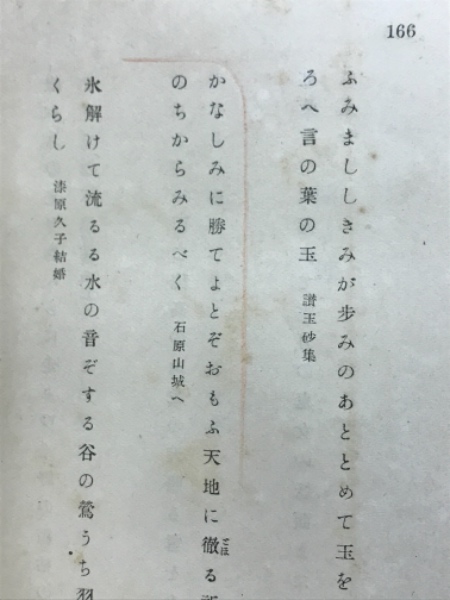 166
ふみまししきみが歩みのあととめて玉を
ろへ言の葉の玉 讃玉砂集
かなしみに勝てよとぞおもふ天地に徹る
とほ
のちからみるべく 石原山城へ
氷解けて流るる水の音ぞする谷の鶯うち
くらし 漆原久子結婚